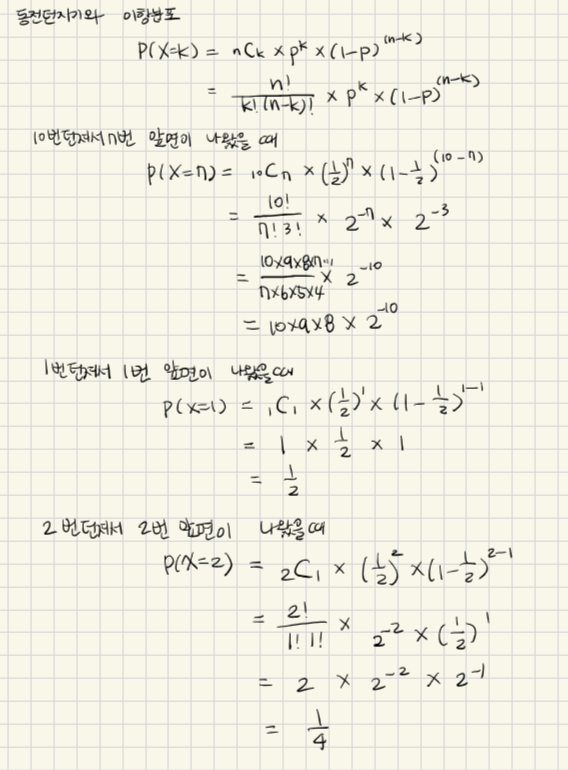 동전던지기와 이항분포
P(X=k) = nCk × p^k × (1-p)^(n-k)
= n! / k!(n-k)! × p^k × (1-p)^(n-k)
10번던져서 7번 앞면이 나왔을 때
P(X=7) = 10C7 × (1/2)^7 × (1-1/2)^(10-7)
= 10! / 7! 3! × 2^-7 × 2^-3
= 10×9×8×7… / 7×6×5×4 × 2^-10
= 10×9×8 × 2^-10
1번던져서 1번 앞면이 나왔을 때
P(X=1) = 1C1 × (1/2)^1 × (1-1/2)^1-1
= 1 × 1/2 × 1
= 1/2
2번던져서 2번 앞면이 나왔을 때
P(X=2) = 2C1 × (1/2)^2 × (1-1/2)^2-1
= 2! / 1! 1! × 2^-2 × (1/2)^1
= 2 × 2^-2 × 2^-1
= 1/4